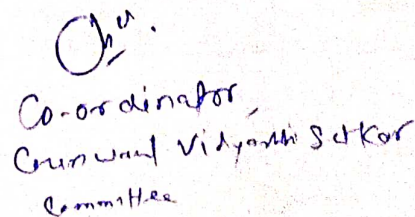 Co-ordinator,
Vidyarthi Satkar
Committee